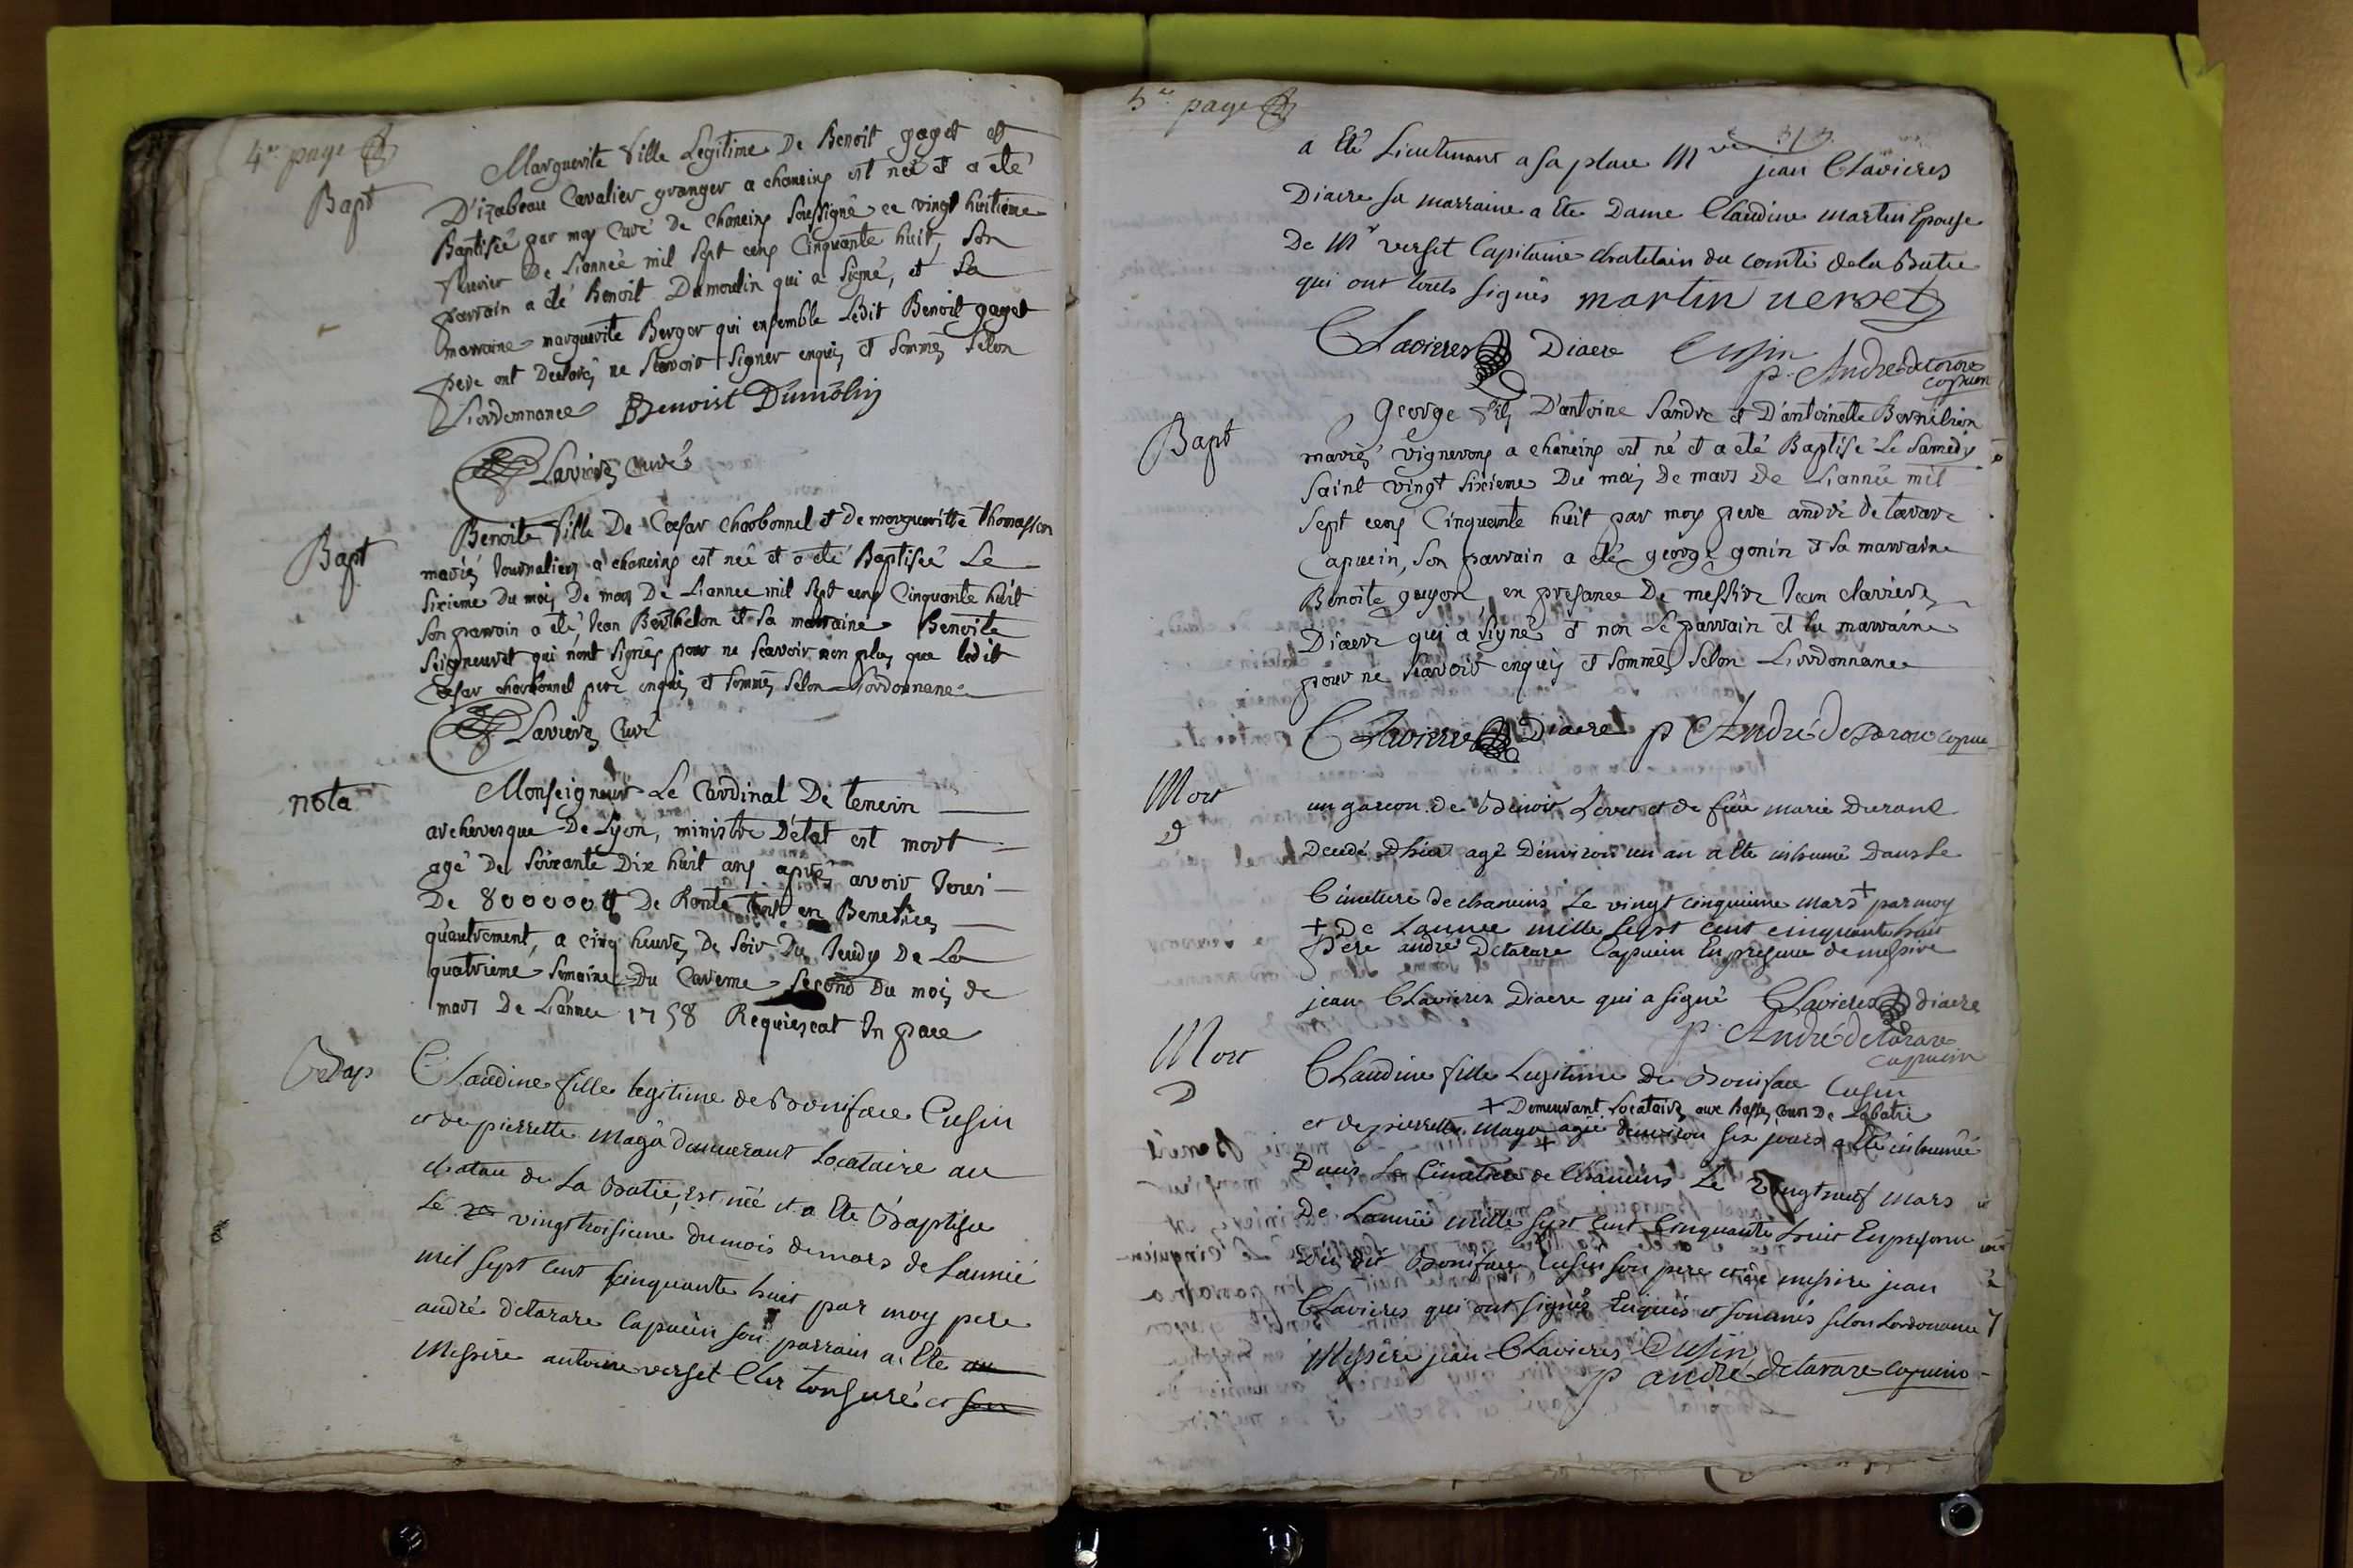 4e. page
Bapt
Marguerite fille Legitime De Benoit gaget et
D'izabeau Cavalier granger a chaneins est née et a eté
Baptisée par moy Curé de chaneins soussigné ce vingt huitieme
fevrier De L'année mil sept cens Cinquante huit, son
parrain a eté Benoit Dumoulin qui a signé, et sa
marraine marguerite Berger qui ensemble Ledit Benoit gaget
pere ont Declarés ne sçavoir signer enquis et sommés selon
L'ordonnance Benoist Dumolin
Clavieres Curé
Bapt
Benoite fille De Cesar charbonnel et de marguerite thomasson
mariés Journaliers a chaneins est née et a eté Baptisée Le
sixieme du mois De mars De L'année mil sept cens Cinquante huit
son parrain a eté Jean Berthelon et sa marraine Benoite
Seigneuret qui nont signés pour ne sçavoir non plus que ledit
Cesar charbonnel pere enquis et sommés selon L'ordonnance
Clavieres Curé
nota
Monseigneur Le Cardinal De tencin
archevesque De Lyon, ministre D'état est mort
agé De soixante Dix huit ans aprés avoir Joui
De 800000 ₶ De Rente tant en Benefices
qu'autrement, a cinq heures De soir Du Jeudy De La
quatrieme semaine Du Careme second Du mois de
mars De L'année 1758 Requiescat In pace
Bap
Claudine fille legitime de Boniface Cusin
et de pierrette maga demeurant Locataire au
chatau de La Batie, est née et a Ete Baptisée
Le vingt troisieme du mois de mars de Lannée
mil sept cent cinquante huit par moy pere
andré detarare Capucin son parrain a Ete
Messire antoine verset Cler tonsuré et son
5e. page
313
a Eté Lieutenant a sa place Mre jean Clavieres
Diacre sa marraine a Ete Dame Claudine martin Epouse
De Mr verset Capitaine chatelain du comté dela Batie
qui ont touts signés martin verset
Clavieres Diacre Cusin
p. André de tarare
capucin
Bapt
George fils D'antoine Sandre et D'antoinette
mariés vignerons a chaneins est né et a eté Baptisé Le samedy
saint vingt sixieme Du mois De mars De L'année mil
sept cens Cinquante huit par moy pere andré de tarare
Capucin, son parrain a eté george gonin et sa marraine
Benoite guyon, en presance De messire Jean clavieres
Diacre qui a signé et non Le parrain et la marraine
pour ne sçavoir enquis et sommés selon L'ordonnance
Clavieres Diacre p André de tarare capuc
Mort
un garcon de Benoit Levet et de füe marie Durand
Decedé Dhier agé Denviron un an a Ete inhumé Dans Le
Cimettiere de chaneins Le vingt cinquieme mars + par moy
+ De Lannee mille sept cent cinquante huit
Pere andré Detarare Capucin En presence de messire
jean Clavieres Diacre qui a signé Clavieres diacre
p. André de tarare
capucin
Mort
Claudine fille Legitime De Boniface Cusin
+ Demeurant Locataire aux basses cours De Labatie
et de pierrette maga + agée denviron six jours a Eté inhumée
Dans Le Cimetiere de Chaneins Le vingt neuf mars
De Lannée mille sept cent Cinquante huit En presence
Du dit Boniface Cusin son pere et de messire jean
Clavieres qui ont signés Enquis et sommés selon Lordonnance
Messire jean Clavieres Cusin
p andré detarare capucin